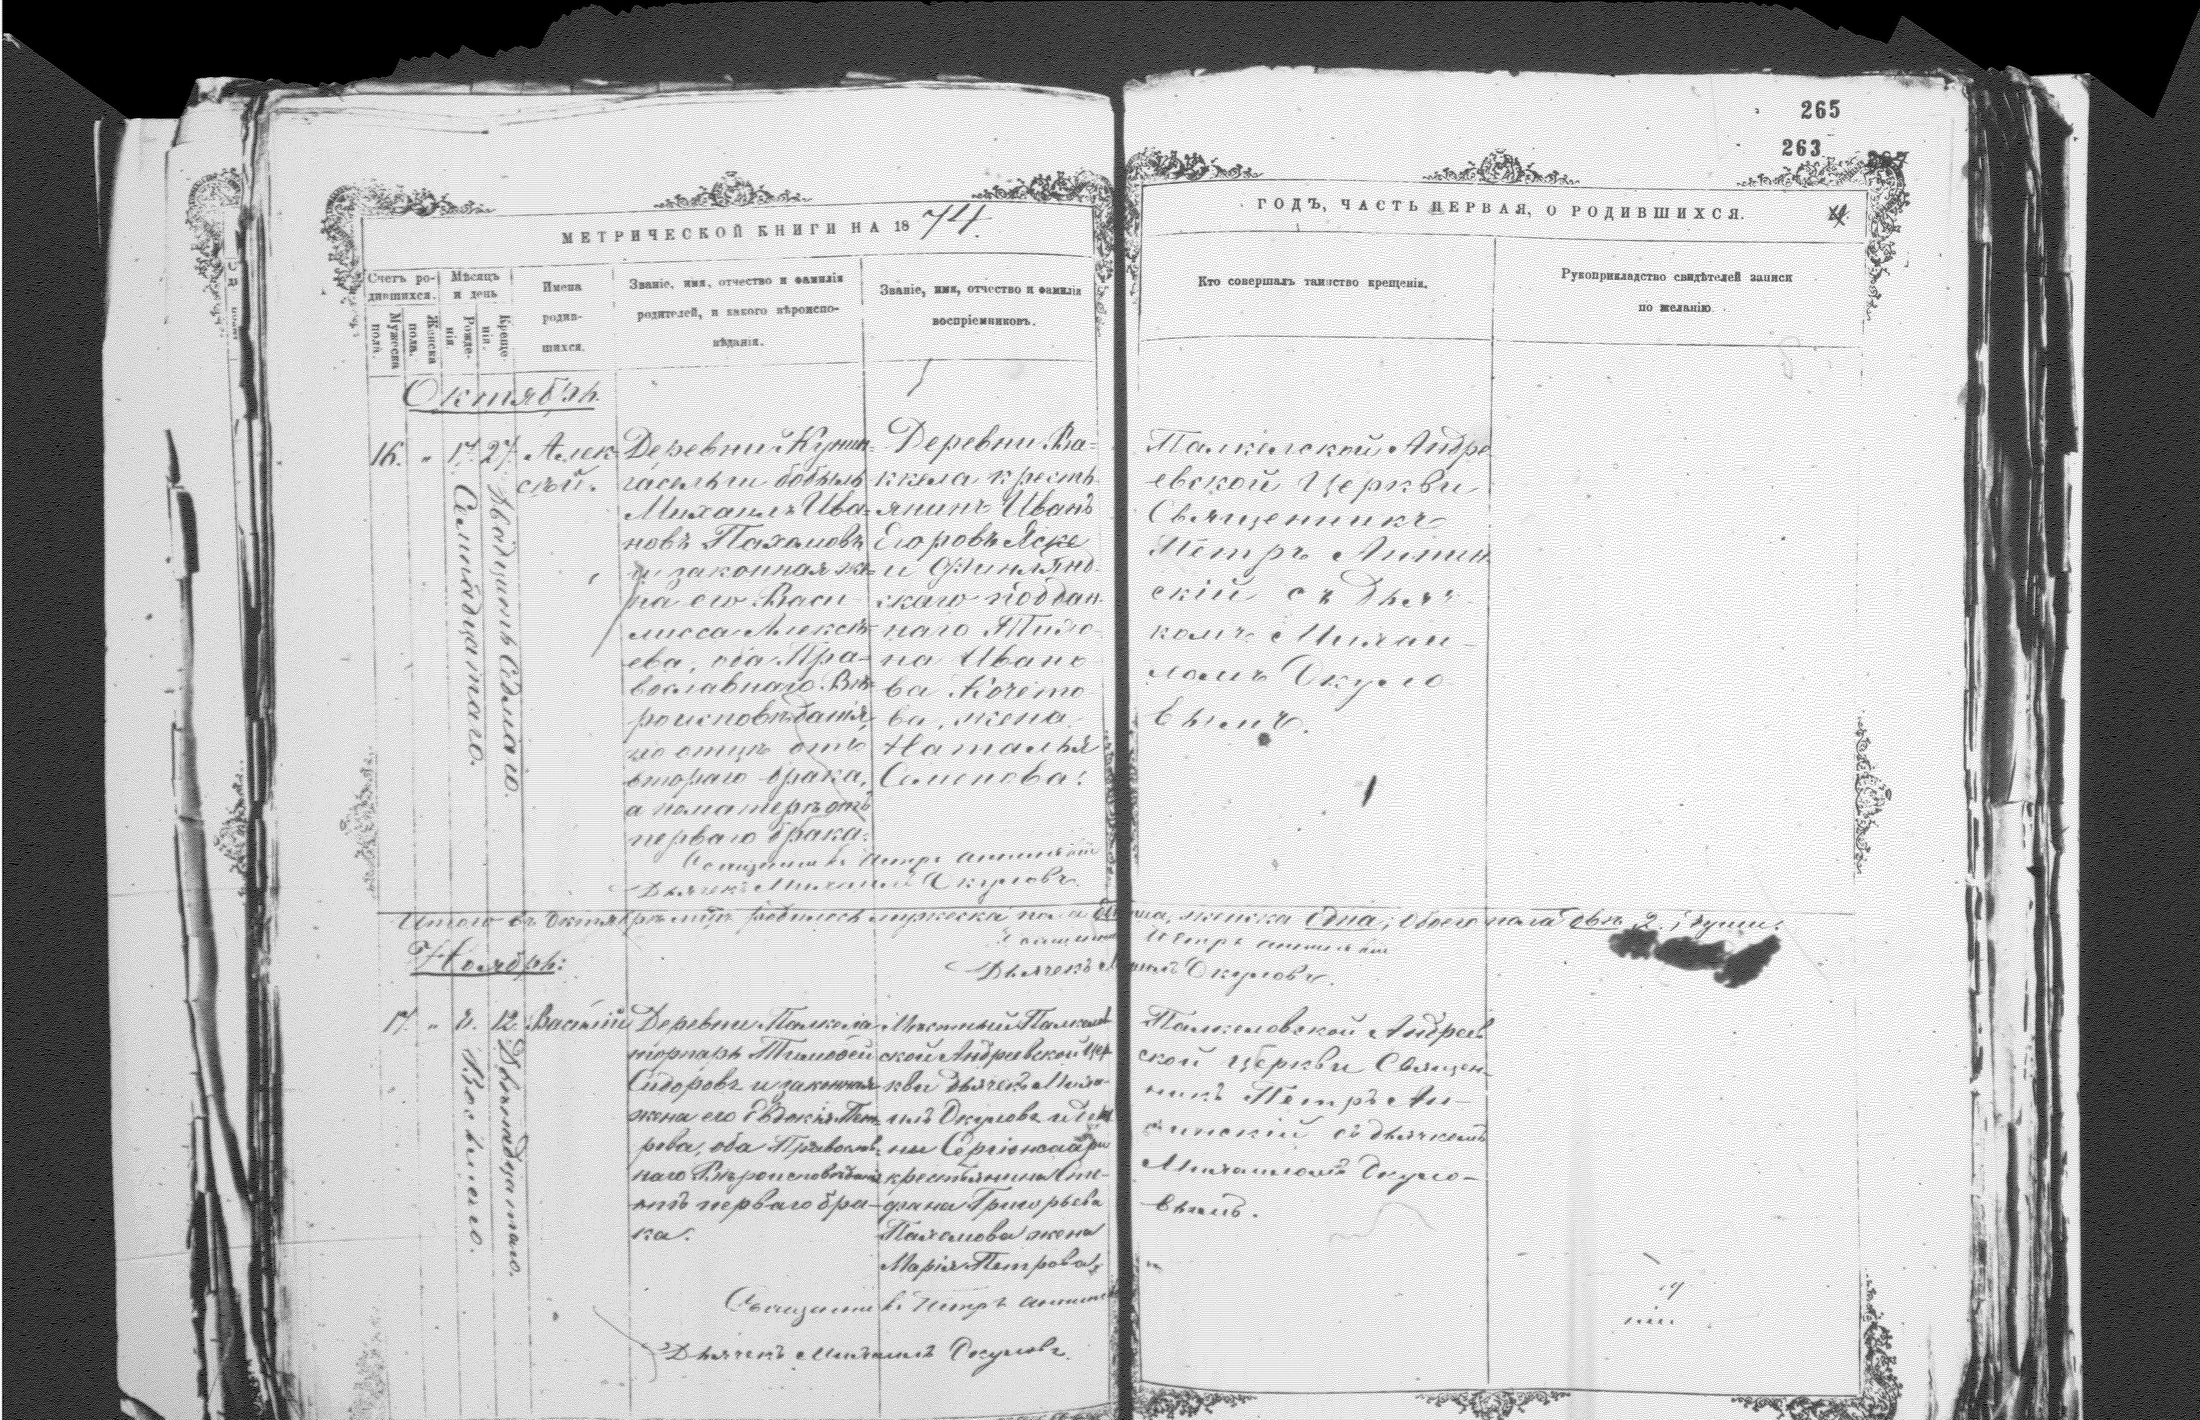 265
263
МЕТРИЧЕСКОЙ КНИГИ НА 1874.
ГОДЪ, ЧАСТЬ ПЕРВАЯ, О РОДИВШИХСЯ.
Счетъ ро-
дившихся.
Мужеска
пола.
Женска
пола.
Мѣсяцъ
и день
Рожде-
нія.
Креще-
нія.
Имена
родив-
шихся.
Званіе, имя, отчество и фамилія
родителей, и какого вѣроиспо-
вѣданія.
Званіе, имя, отчество и фамилія
воспріемниковъ.
Кто совершалъ таинство крещенія.
Рукоприкладство свидѣтелей записи
по желанію.
Октябрь.
16. " 17. 27.
Семнадцатаго.
Двадцать Седмаго.
Алек-
сѣй.
Деревни
бобыль
Михаилъ Ива-
новъ Пахомовъ
и законная же-
на его Васи-
лисса Алексѣ-
ева, оба Пра-
вославнаго Вѣ-
роисповѣданія,
по отцѣ отъ
втораго брака,
а по матерѣ отъ
перваго брака.
Деревни Ва-
ккела кресть-
янинъ Иванъ
Егоровъ Яске
и Финлянд-
скаго поддан-
наго
Ивано
ва
ва, жена
Наталья
Семенова.
Палкельской Андре
евской Церкви
Священникъ
Петръ
скій съ дьяч-
комъ Михаи-
ломъ Окуло-
вымъ.
Священникъ Петръ
Дьячекъ Михаилъ Окуловъ.
Итого въ Октябрѣ мцѣ родилось мужеска пола одна, женска одна, обоего пола двѣ 2. души.
Священникъ Петръ
Дьячекъ Михаилъ Окуловъ.
Ноябрь:
17. " 8. 12.
Восьмаго.
Двѣнадцатаго.
Василій
Деревни Палкела
торпарь Тимофей
Сидоровъ и законная
жена его Евдокія Пет-
рова, оба Православ-
наго Вѣроисповѣданія
отъ перваго бра-
ка.
Мѣстный Палкелов
ской Андреевской Цер
кви дьячекъ Миха-
илъ Окуловъ и
крестьянина Сте-
фана Григорьева
Пахомова жена
Марія Петрова.
Палкеловской Андреев
ской Церкви Священ-
никъ Петръ
скій съ дьячкомъ
Михаиломъ Окуло-
вымъ.
Священникъ Петръ
Дьячекъ Михаилъ Окуловъ.